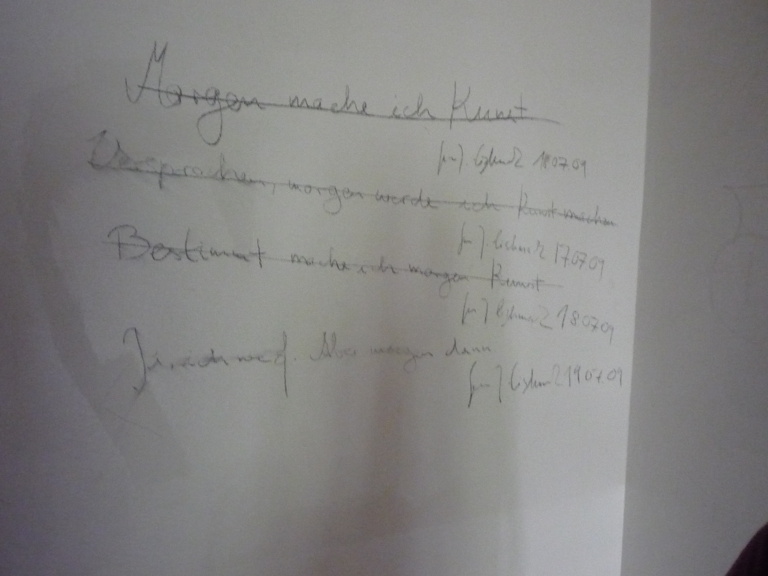 Morgen mache ich Kunst
07.09
Versprochen, morgen werde ich Kunst machen
17.07.09
Bestimmt mache ich morgen Kunst
18.07.09
Ja, ich weiß. Aber morgen dann
19.07.09